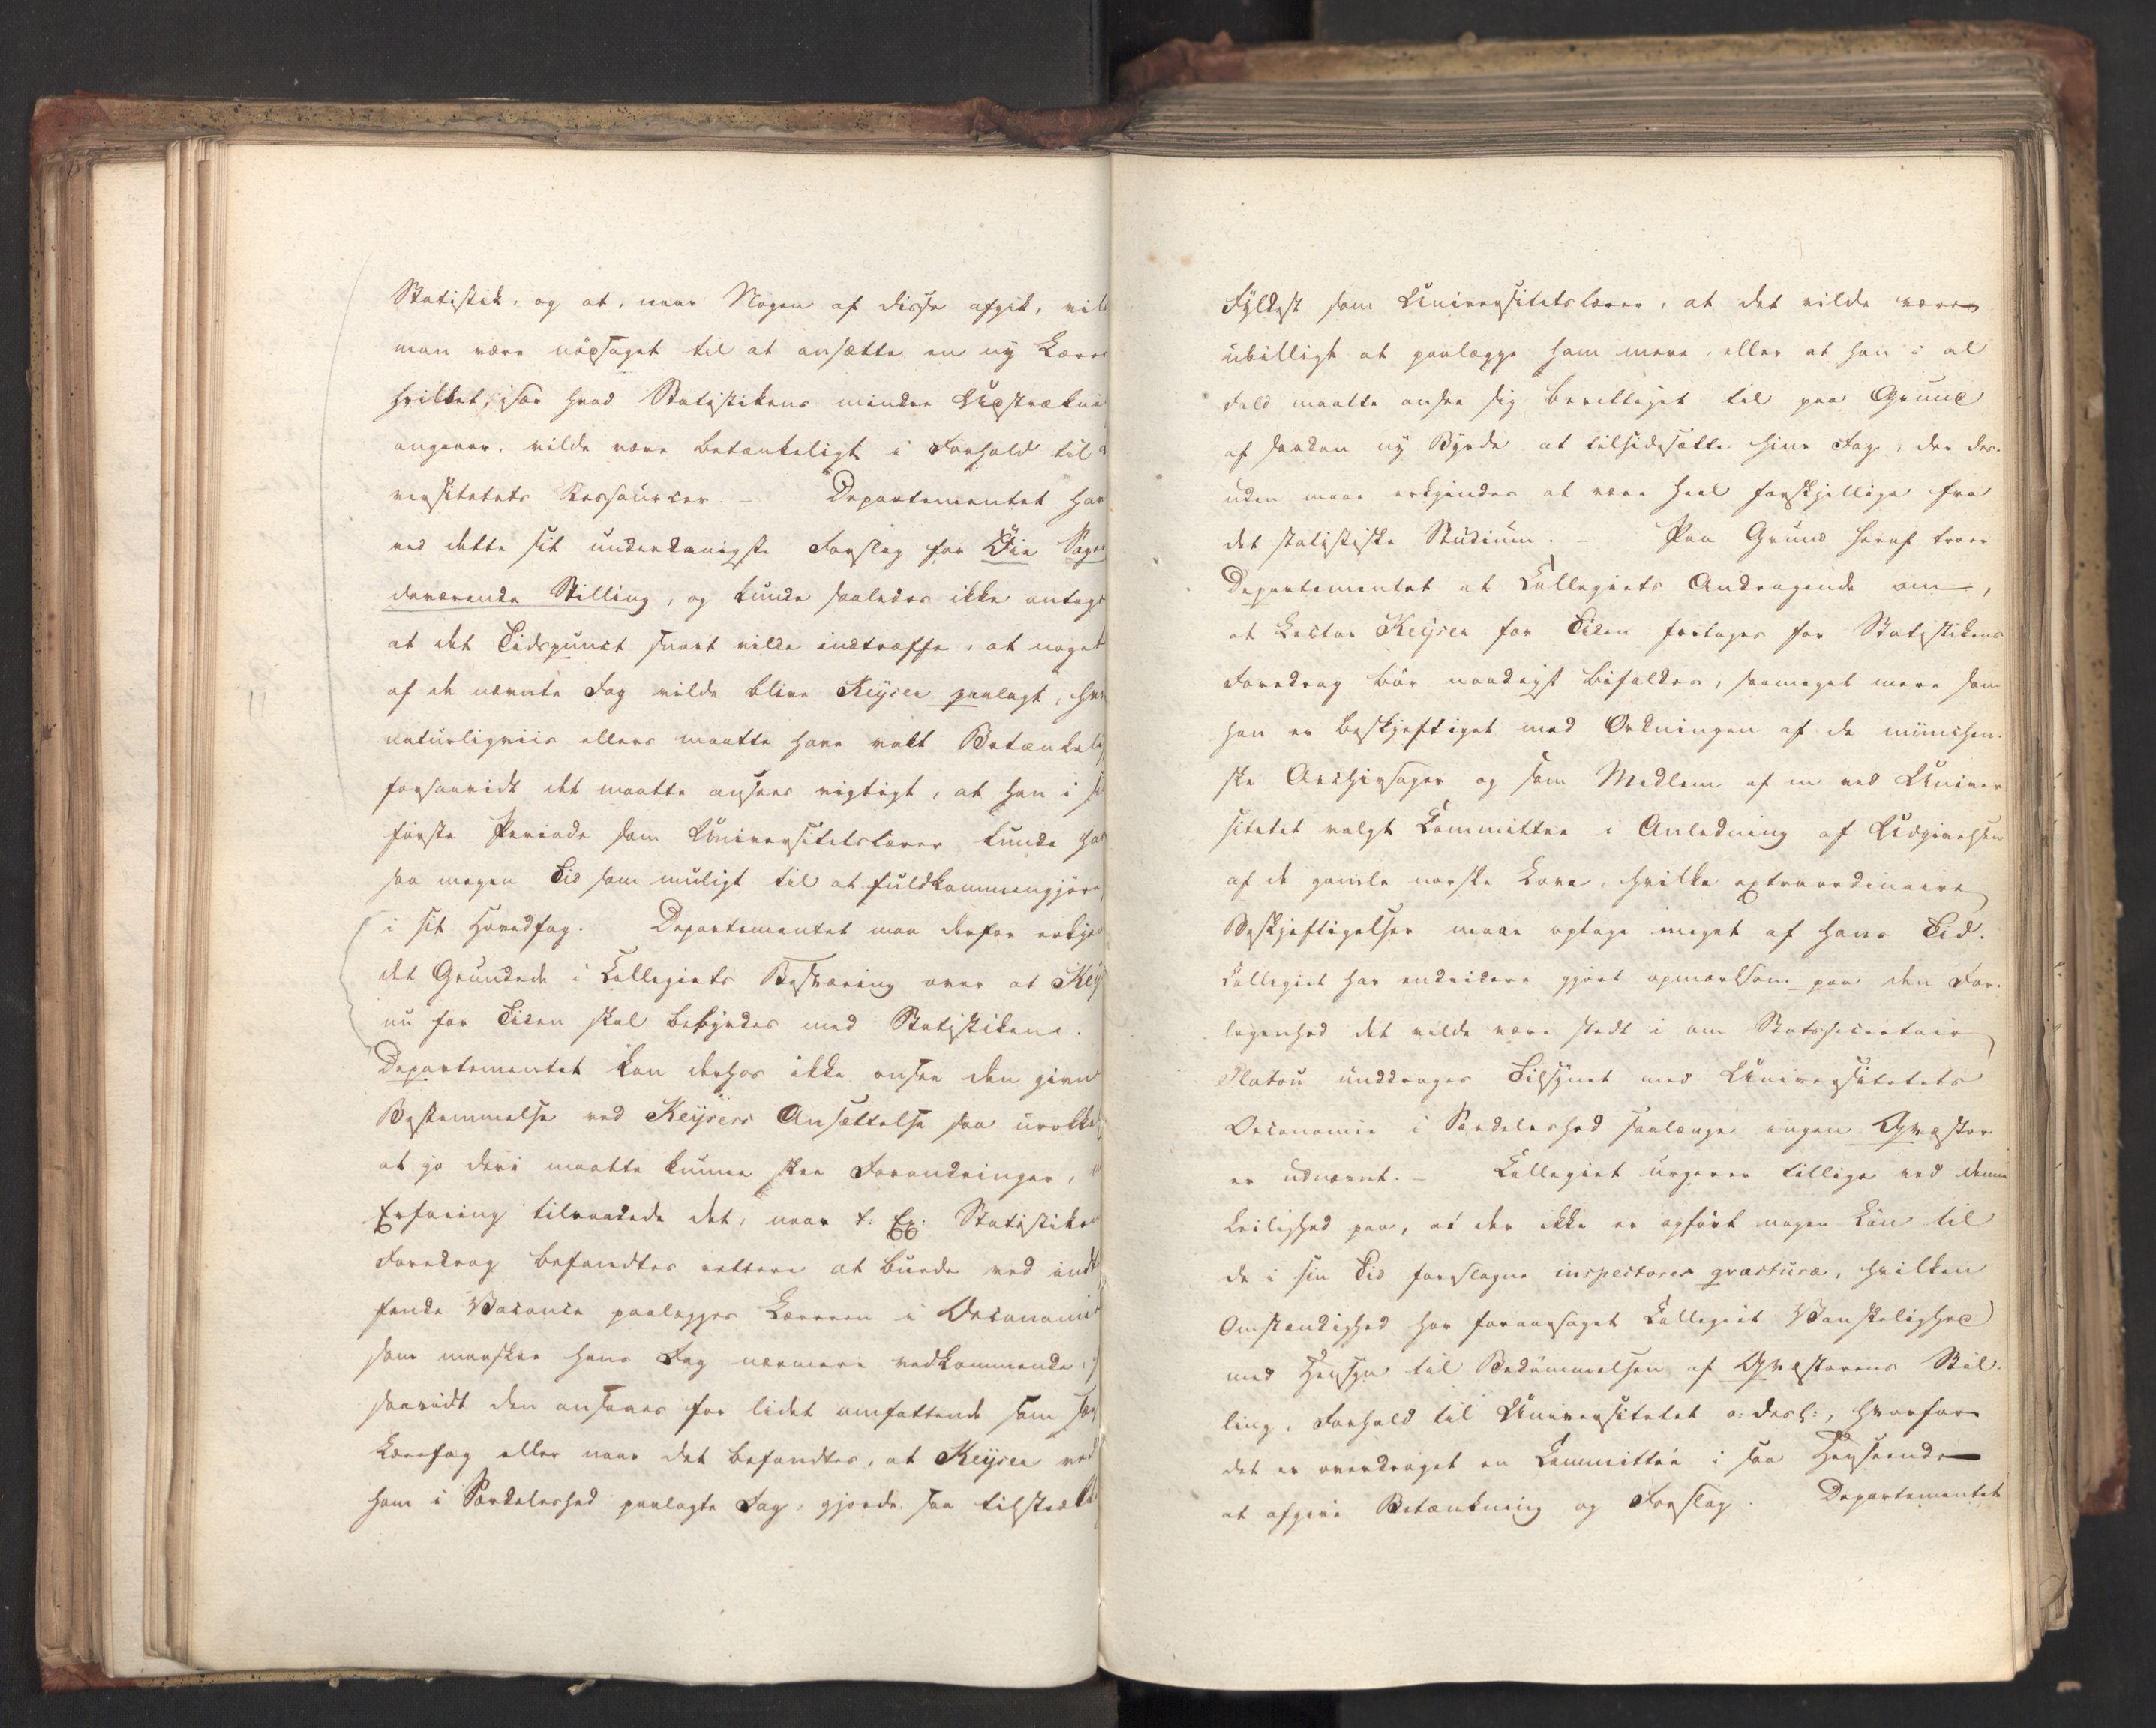 Statistik, og at, naar Nogen af disse afgik, vil
man være nødsaget til at ansætte en ny Lærer
hvilket, især hvad Statistikens mindre Udstrækni
angaaer, vilde være betænkeligt i Forhold til
versitetets Ressourcer. – Departementet har
ved dette sit underdanigste Forslag for Øie Sage
daværende Stilling, og kunde saaledes ikke antage
at det Tidspunct snart vilde indtræffe, at noget
af de nævnte Fag vilde blive Keyser paalagt, hv
naturligviis ellers maatte have vakt Betænkeli
forsaavidt det maatte ansees vigtigt, at han i si
første Periode som Universitetslærer kunde ha
saa megen Tid som muligt til at fuldkommengjøre
i sit Hovedfag. Departementet maa derfor erkje
det Grundede i Collegiets Besværing over at Key
nu for Tiden skal bebyrdes med Statistikens.
Departementet kan derhos ikke ansee den givne
Bestemmelse ved Keysers Ansættelse saa urokke
at jo deri maatte kunne skee Forandringer,
Erfaring tilraadede det, naar t: Ex: Statistiken
Foredrag befandtes rettere at burde ved indt
fende Vacance paalægges Læreren i Oeconomie
som maaskee hans Fag nærmere vedkommende,
saavidt den ansaaes for lidet omfattende som sær
Lærefag eller naar det befandtes, at Keyser ved
ham i Særdeleshed paalagte Fag, gjorde saa tilstrække
Fyldest som Universitetslærer, at det vilde være
ubilligt at paalægge ham mere, eller at han i al
Fald maatte ansee sig berettiget til paa Grund
af saadan ny Byrde at tilsidesætte hine Fag, der des-
uden maae erkjendes at være heel forskjellige fra
det statistiske Studium. – Paa Grund heraf troer
Departementet at Collegiets Andragende om,
at Lector Keyser for Tiden fritages for Statistikens
Foredrag bør naadigst bifaldes, saameget mere som
han er beskjeftiget med Ordningen af de münchen-
ske Archivsager og som Medlem af en ved Univer
sitetet valgt Committee i Anledning af Udgivelsen
af de gamle norske Love, hvilke extraordinaire
Beskjeftigelser maae optage meget af hans Tid.
Collegiet har endvidere gjort opmærksom paa den For-
legenhed det vilde være stedt i om Statssecretair
Platou unddrages Tilsynet med Universitetets
Oeconomie i Særdeleshed saalænge ingen Qvæstor
er udnævnt. – Collegiet urgerer tillige ved denne
Leilighed paa, at der ikke er opført nogen Løn til
de i sin Tid foreslagne inspectores qvæsturæ, hvilken
Omstændighed har foraarsaget Collegiet Vanskelighed
med Hensyn til Bedømmelsen af Qvæstorens Stil-
ling, Forhold til Universitetet o: desl:, hvorfor
det er overdraget en Committée i saa Henseende
at afgive Betænkning og Forslag. Departementet